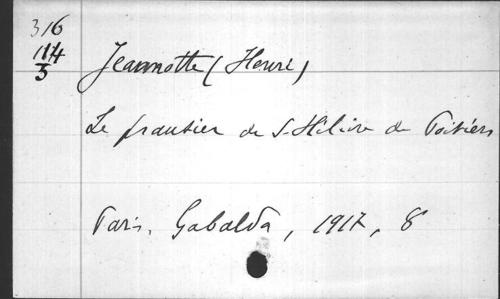 316
114
3
Jeannotte (Henri)
Le psautier de S. Hilaire de Poitiers
Paris, Gabalda, 1917, 8°